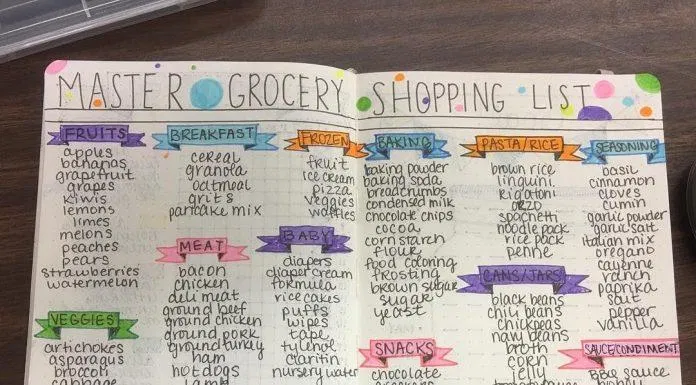 MASTER GROCERY SHOPPING LIST
FRUITS
apples
bananas
grapefruit
grapes
kiwis
lemons
limes
melons
peaches
pears
strawberries
watermelon
VEGGIES
artichokes
asparagus
broccoli
cabbage
BREAKFAST
cereal
granola
oatmeal
grits
pancake mix
MEAT
bacon
chicken
deli meat
ground beef
ground chicken
ground pork
ground turkey
ham
hot dogs
lamb
FROZEN
fruit
ice cream
pizza
veggies
waffles
BABY
diapers
diaper cream
formula
rice cakes
puffs
wipes
tape
tylenol
claritin
nursery water
BAKING
baking powder
baking soda
breadcrumbs
condensed milk
chocolate chips
cocoa
corn starch
flour
food coloring
frosting
brown sugar
sugar
yeast
SNACKS
chocolate
PASTA/RICE
brown rice
linguini
rigatoni
orzo
spaghetti
noodle pack
rice pack
penne
CANS/JARS
black beans
chili beans
chickpeas
navy beans
broth
corn
jelly
SEASONING
basil
cinnamon
cloves
cumin
garlic powder
garlic salt
italian mix
oregano
cayenne
ranch
paprika
salt
pepper
vanilla
SAUCE/CONDIMENT
BBQ sauce